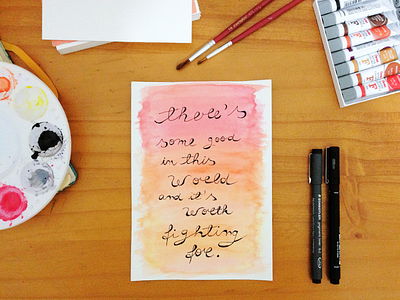 there's
some good
in this
world
and it's
worth
fighting
for.